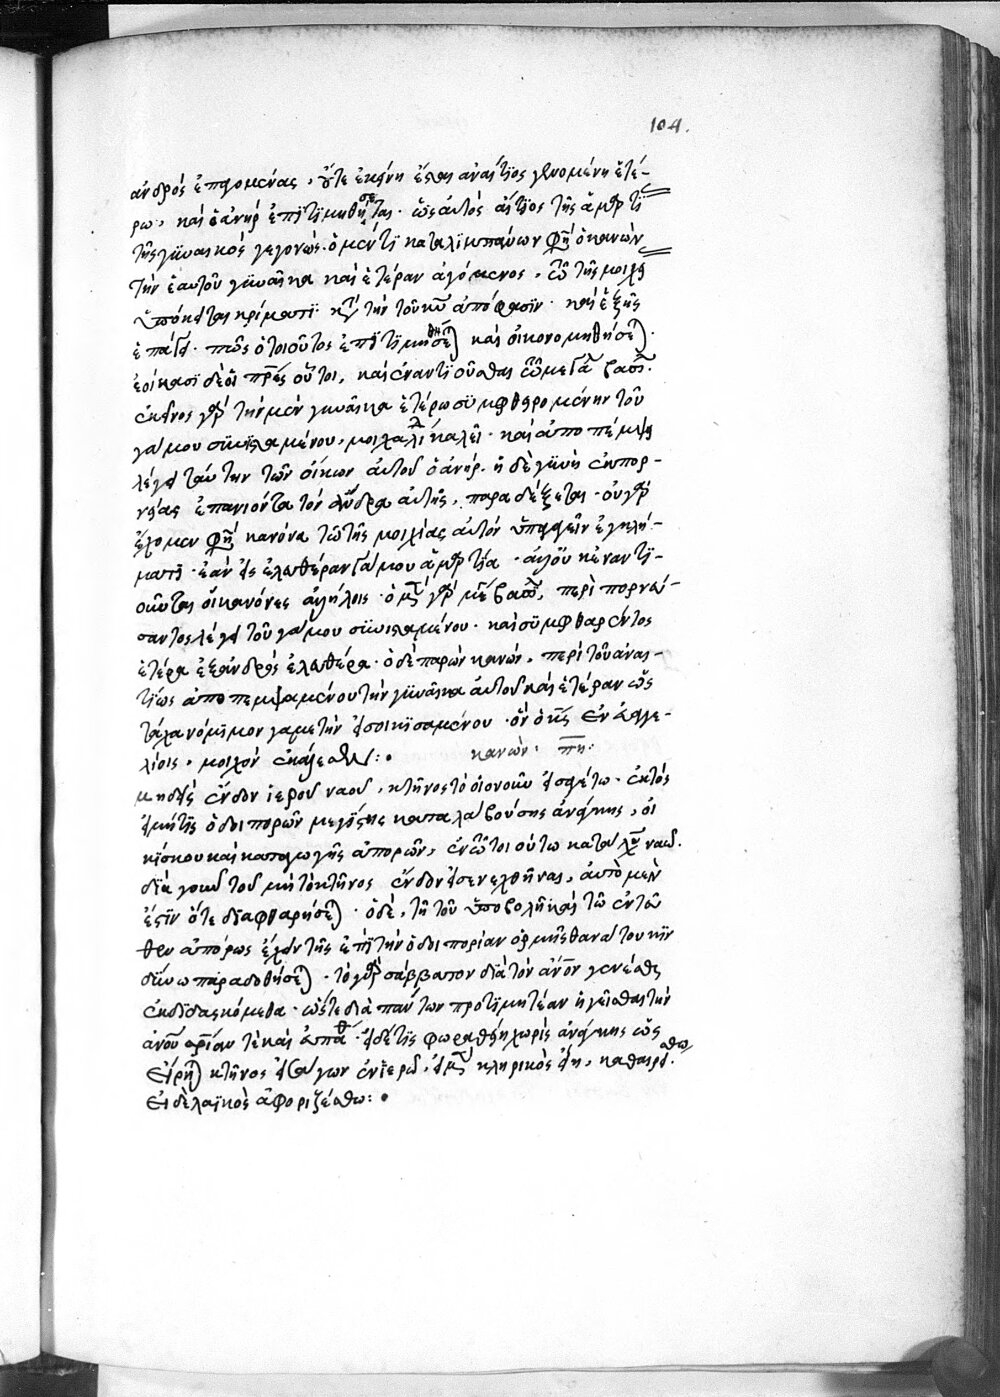 104.
ἀνδρὸς ἑπομένας, οὔτε ἐκείνη ἔσται ἀναίτιος γινομένη ἑτέ-
ρω, καὶ ὁ ἀνὴρ ἐπιτιμηθήσεται· ὡς αὐτὸς αἴτιος τῆς ἁμρτί
τῆς γυναικὸς γεγονώς. ὁ μέντι καταλιμπάνων φη ὁ κανὼν
τὴν ἑαυτοῦ γυναῖκα καὶ ἑτέραν ἀγόμενος, τῶ τῆς μοιχεί
ὑπόκειται κρίματι κτ τὴν τοῦ κυ ἀπόφασιν· καὶ ἑξῆς
ἐπάγει· πῶς ὁ τοιοῦτος ἐπιτιμηθήσετ καὶ οἰκονομηθήσετ.
ἐοίκασι δὲ οἱ πρὸς οὗτοι, καὶ ἐναντιοῦσθαι τῶ μεγά βασ.
ἐκεῖνος γὰρ τὴν μὲν γυναῖκα ἑτέρω συμφθαρομένην τοῦ
γάμου συνισταμένου, μοιχαλλὶ καλεῖ· καὶ ἀποπέμψει
λέγει ταύτην τῶν οἴκων αὐτοῦ ὁ ἀνήρ. ἡ δὲ γυνὴ ἐκ πορ-
νείας ἐπανιόντα τὸν ἄνδρα αὐτῆς, παραδέξεται· οὐ γὰρ
ἔχομεν φη κανόνα τῶ τῆς μοιχίας αὐτὸν ὑπαγαγεῖν ἐγκλή-
ματι· ἐὰν εἰς ἐλευθέραν γάμου ἁμρτία· ἀλλ' οὐκ ἐναντι-
οῦνται οἱ κανόνες ἀλλήλοις· ὁ μ γὰρ μὲν βασ, περὶ πορνεύ-
σαντος λέγει τοῦ γάμου συνισταμένου· καὶ συμφθαρέντος
ἑτέρα ἐξ ἀνδρὸς ἐλευθέρα· ὁ δὲ παρὼν κανὼν, περὶ τοῦ ἀναι-
τίως ἀποπεμψαμένου τὴν γυναῖκα αὐτοῦ καὶ ἑτέραν ὡς
τάχα νόμιμον γαμετὴν εἰσοικισαμένου· ὃν ὁ κς ἐν εὐαγγε-
λίοις, μοιχὸν ἐκάλεσεν:•
κανὼν· πη:
μηδεὶς ἔνδον ἱεροῦ ναοῦ, κτῆνος τὸ οἱονοῦν εἰσαγέτω· ἐκτὸς
εἰ μή τις ὁδοιπορῶν μεγίστης καταλαβούσης ἀνάγκης, οἰ
κίσκου καὶ καταγωγῆς ἀπορῶν, ἐν τῶ τοιούτω καταλύση ναῶ.
διὰ γοῦν τοῦ μὴ τὸ κτῆνος ἔνδον εἰσενεχθῆναι, αὐτὸ μὲν
ἔστιν ὅτε διαφθαρήσετ· ὁ δὲ, τῆ τοῦ ὑποβολῆ καὶ τῶ ἐντεῦ
θεν ἀπόρως ἔχειν τῆς ἐπὶ τὴν ὁδοιπορίαν ὁρμῆς θανάτου κιν
δύνω παραδοθήσετ· τὸ γὰρ σάββατον διὰ τὸν ἄνον γενέσθαι
ἐκδιδασκόμεθα· ὥστε διὰ πάντων προτιμητέαν ἡγεῖσθαι τὴν
ἀνου σρίαν τὲ καὶ ἀπάθ· εἰ δέ τις φωραθείη χωρὶς ἀνάγκης ὡς
εἴρητ κτῆνος εἰσάγων ἐν ἱερῶ, εἰ μ κληρικὸς εἴη, καθαιρείσθω.
εἰ δὲ λαϊκὸς ἀφοριζέσθω:•